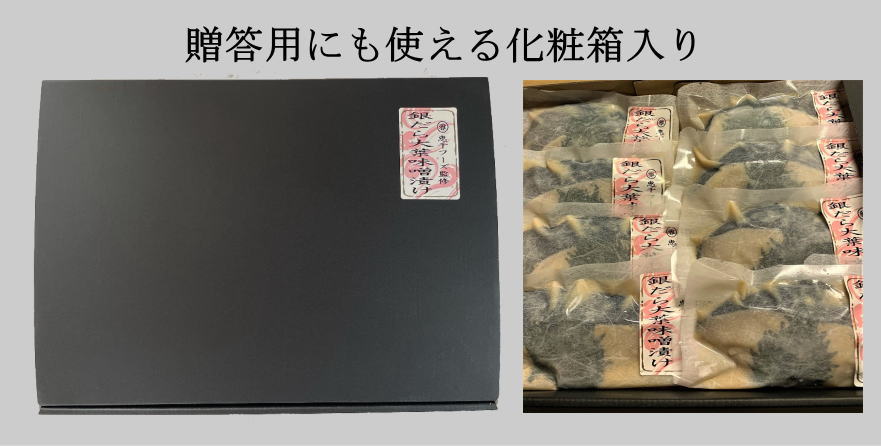 贈答用にも使える化粧箱入り
惠千フーズ監修
銀だら大葉味噌漬け
銀だら大葉
銀だら大葉
銀だら大
銀だら大葉味
銀だら大葉味噌漬け